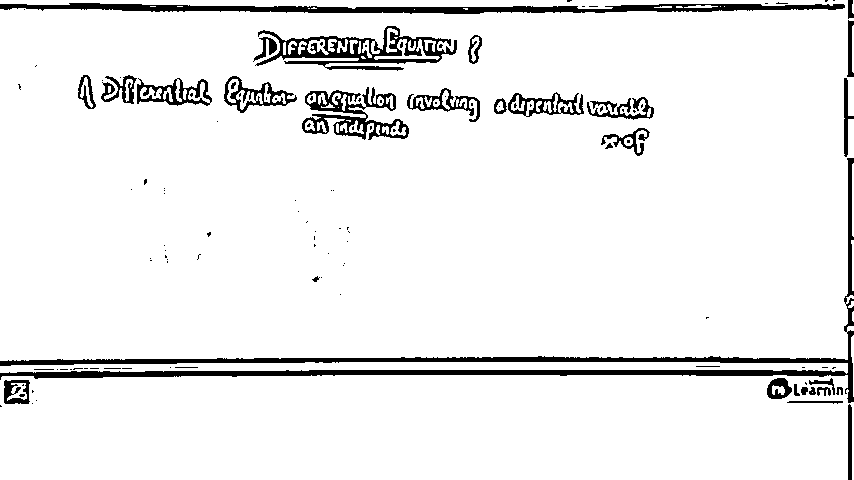 DIFFERENTIAL EQUATION ?
1) Differential Equation- an equation involving a dependent variable
an independe
x of
Learning